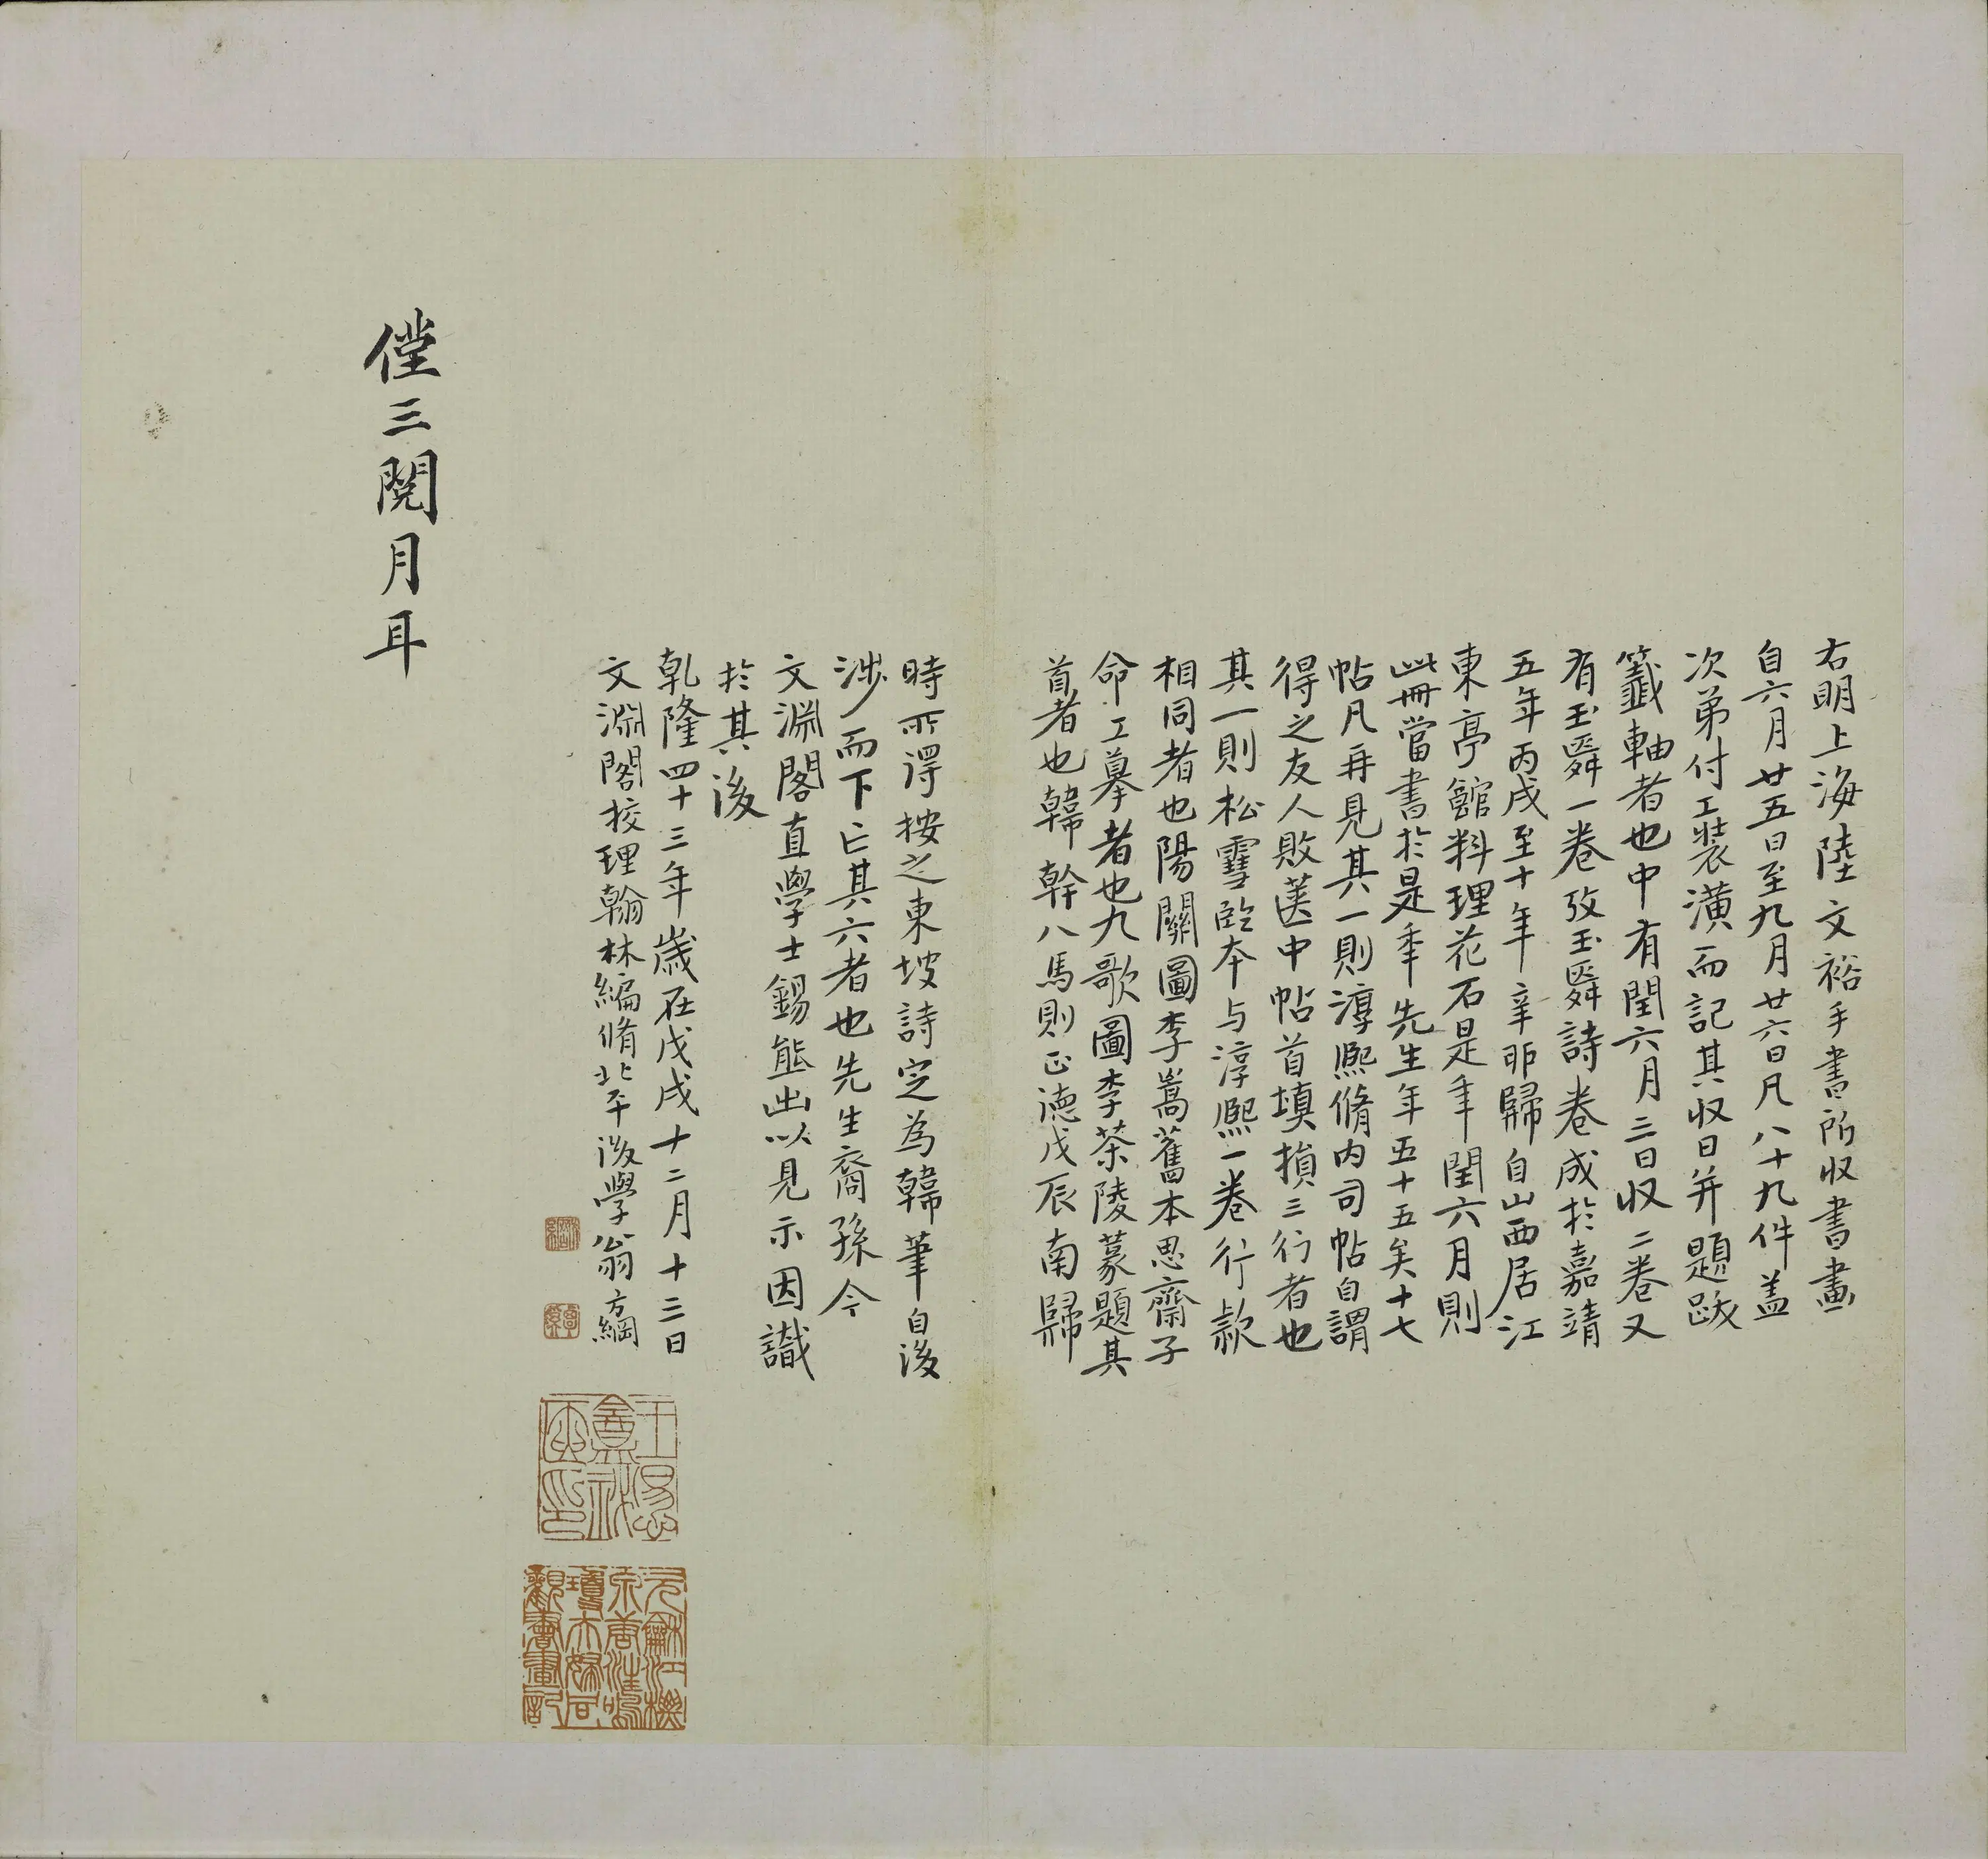 右明上海陸文裕手書所收書畫
自六月廿五日至九月廿六日凡八十九件盖
次弟付工裝潢而記其収日并題跋
籖軸者也中有閏六月三日収二卷又
有玉舜一卷攷玉舜詩卷成於嘉靖
五年丙戌至十年辛卯歸自山西居江
東亭館料理花石是年閏六月則
此冊當書於是年先生年五十五矣十七
帖凡再見其一則淳熈脩内司帖自謂
得之友人敗篋中帖首填損三行者也
其一則松雪臨本与淳熈一卷行款
相同者也陽關圖李嵩舊本思齋子
命工摹者也九歌圖李茶陵篆題其
首者也韓幹八馬則正德戊辰南歸
時所淂按之東坡詩定為韓筆自後
涉而下亡其六者也先生裔孫今
文淵閣直學士錫熊出以見示因識
於其後
乹隆四十三年歲在戊戌十二月十三日
文淵閣挍理翰林編脩北平後學翁方綱
三閱月耳